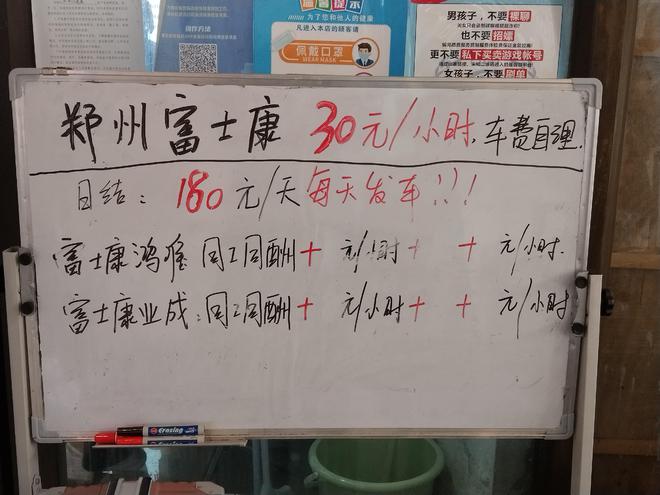 温馨提示
为了您和他人的健康
凡进入本店的顾客请
佩戴口罩
WEAR MASK
男孩子，不要裸聊
也不要招嫖
更不要私下买卖游戏帐号
女孩子，不要刷单
郑州富士康 30元/小时.车费自理.
日结：180元/天每天发车!!!
富士康鸿 同工同酬+ 元/小时+ + 元/小时.
富士康业成:同工同酬+ 元/小时+ + 元/小时
Erasing